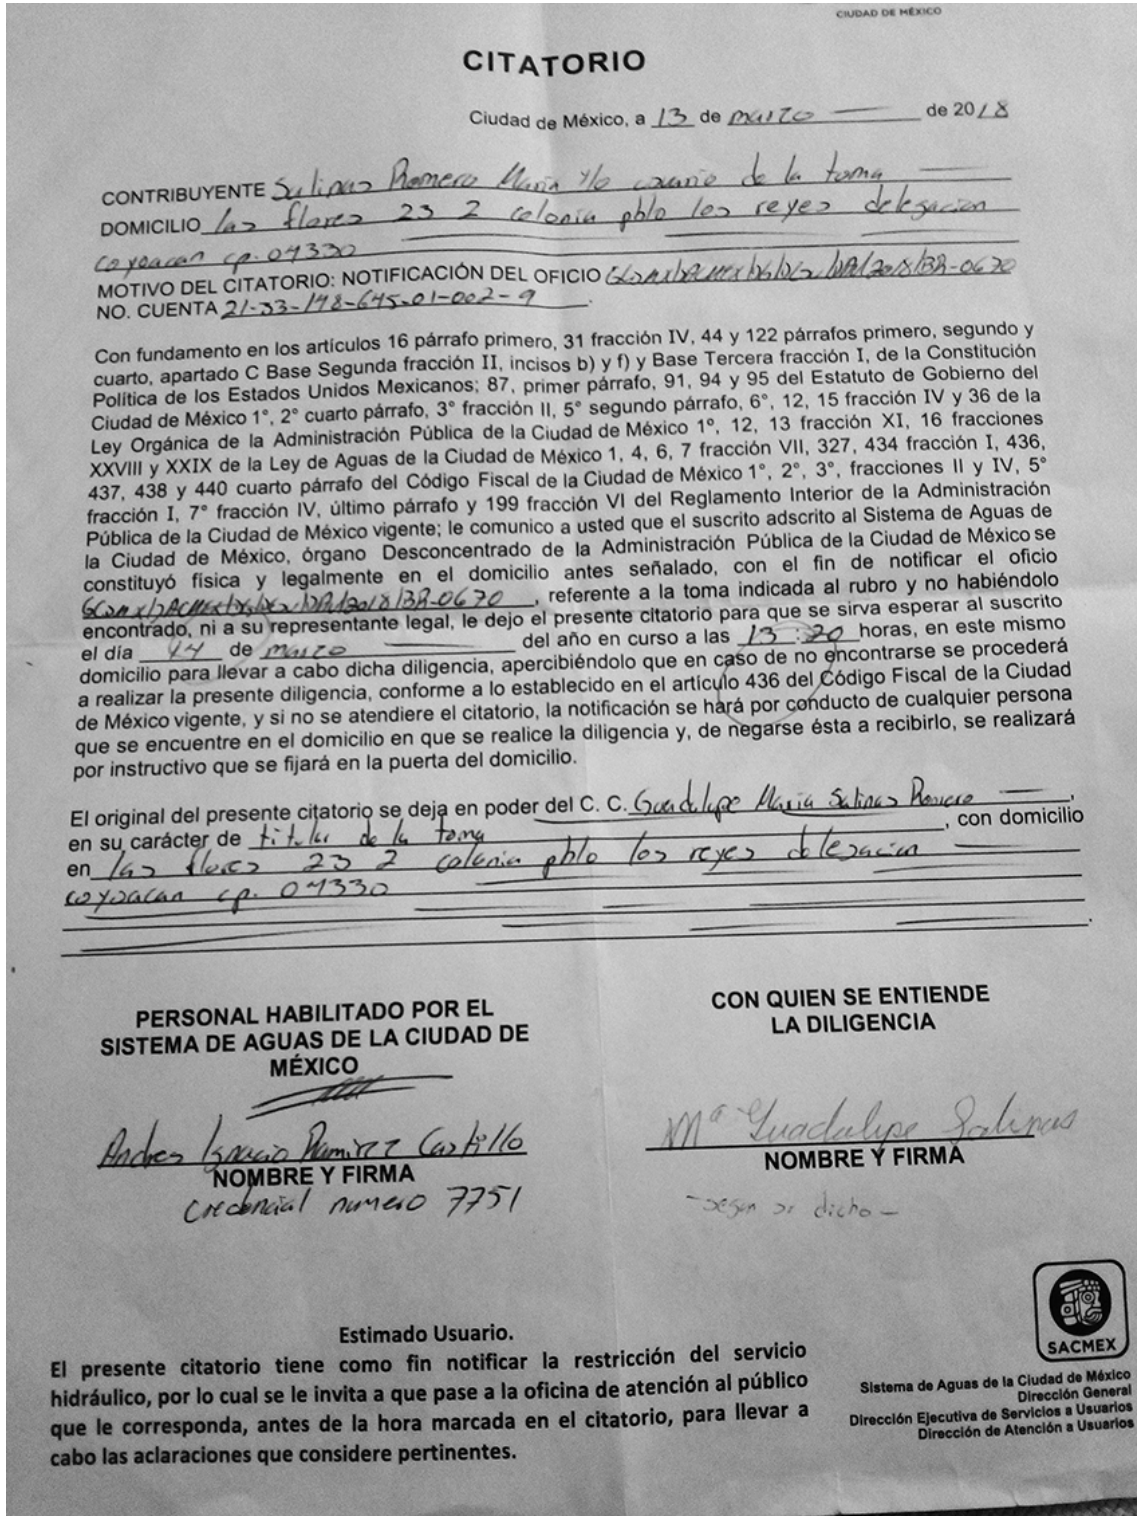 CIUDAD DE MÉXICO
CITATORIO
Ciudad de México, a 13 de marzo de 2018
CONTRIBUYENTE Salinas Romero Maria y/o usuario de la toma
DOMICILIO las flores 23 2 colonia pblo los reyes delegacion
coyoacan cp. 04330
MOTIVO DEL CITATORIO: NOTIFICACIÓN DEL OFICIO
NO. CUENTA 21-33-148-645-01-002-9
Con fundamento en los artículos 16 párrafo primero, 31 fracción IV, 44 y 122 párrafos primero, segundo y
cuarto, apartado C Base Segunda fracción II, incisos b) y f) y Base Tercera fracción I, de la Constitución
Política de los Estados Unidos Mexicanos; 87, primer párrafo, 91, 94 y 95 del Estatuto de Gobierno del
Ciudad de México 1°, 2° cuarto párrafo, 3° fracción II, 5° segundo párrafo, 6°, 12, 15 fracción IV y 36 de la
Ley Orgánica de la Administración Pública de la Ciudad de México 1º, 12, 13 fracción XI, 16 fracciones
XXVIII y XXIX de la Ley de Aguas de la Ciudad de México 1, 4, 6, 7 fracción VII, 327, 434 fracción I, 436,
437, 438 y 440 cuarto párrafo del Código Fiscal de la Ciudad de México 1°, 2°, 3°, fracciones II y IV, 5°
fracción I, 7° fracción IV, último párrafo y 199 fracción VI del Reglamento Interior de la Administración
Pública de la Ciudad de México vigente; le comunico a usted que el suscrito adscrito al Sistema de Aguas de
la Ciudad de México, órgano Desconcentrado de la Administración Pública de la Ciudad de México se
constituyó física y legalmente en el domicilio antes señalado, con el fin de notificar el oficio
, referente a la toma indicada al rubro y no habiéndolo
encontrado, ni a su representante legal, le dejo el presente citatorio para que se sirva esperar al suscrito
el día 14 de marzo del año en curso a las 13:20 horas, en este mismo
domicilio para llevar a cabo dicha diligencia, apercibiéndolo que en caso de no encontrarse se procederá
a realizar la presente diligencia, conforme a lo establecido en el artículo 436 del Código Fiscal de la Ciudad
de México vigente, y si no se atendiere el citatorio, la notificación se hará por conducto de cualquier persona
que se encuentre en el domicilio en que se realice la diligencia y, de negarse ésta a recibirlo, se realizará
por instructivo que se fijará en la puerta del domicilio.
El original del presente citatorio se deja en poder del C. C. Guadalupe Maria Salinas Romero,
en su carácter de titular de la toma, con domicilio
en las flores 23 2 colonia pblo los reyes delegacion
coyoacan cp. 04330
PERSONAL HABILITADO POR EL
SISTEMA DE AGUAS DE LA CIUDAD DE
MÉXICO
Andres Ignacio Ramirez Castillo
NOMBRE Y FIRMA
credencial numero 7751
CON QUIEN SE ENTIENDE
LA DILIGENCIA
Mª Guadalupe Salinas
NOMBRE Y FIRMA
-segun su dicho-
Estimado Usuario.
El presente citatorio tiene como fin notificar la restricción del servicio
hidráulico, por lo cual se le invita a que pase a la oficina de atención al público
que le corresponda, antes de la hora marcada en el citatorio, para llevar a
cabo las aclaraciones que considere pertinentes.
SACMEX
Sistema de Aguas de la Ciudad de México
Dirección General
Dirección Ejecutiva de Servicios a Usuarios
Dirección de Atención a Usuarios